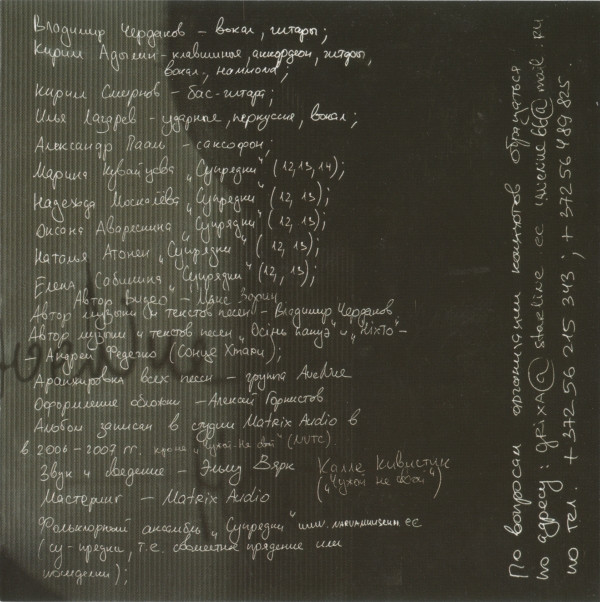 Владимир Чердаков – вокал, гитары;
Кирилл Адылин – клавишные, аккордеон, гитары,
вокал, hammond;
Кирилл Смирнов – бас-гитара;
Илья Лазарев – ударные, перкуссия, вокал;
Александр Пааль – саксофон;
Марина Кувайцева „Супрядки“ (12, 13, 14);
Надежда Москалёва „Супрядки“ (12, 13);
Оксана „Супрядки“ (12, 13);
Наталья Атонен „Супрядки“ (12, 13);
Елена Сабинина „Супрядки“ (12, 13);
Автор видео – Зорин
Автор музыки и текстов песен – Владимир Чердаков,
Автор музыки и текстов песен „Осінь панує“ и „Ніхто“ –
– Андрей Федечко (Сонце Хмари);
Аранжировка всех песен – группа Avenue
Оформление обложки – Алексей Горнистов
Альбом записан в студии Matrix Audio в
в 2006 – 2007 гг. кроме „Чужой – не свой“ (NUTC).
Звук и сведение – Эльму Вярк Калле Кивистик
(„Чужой не свой“)
Мастеринг – Matrix Audio
Фольклорный ансамбль „Супрядки“ www. .ee
(су-прядки, т.е. совместное прядение или
посиделки);
По вопросам организации концертов обращаться
по адресу: GRIXA@starline.ee @mail.ru
по тел. +372 56 215 343 ; +372 56 489 825.